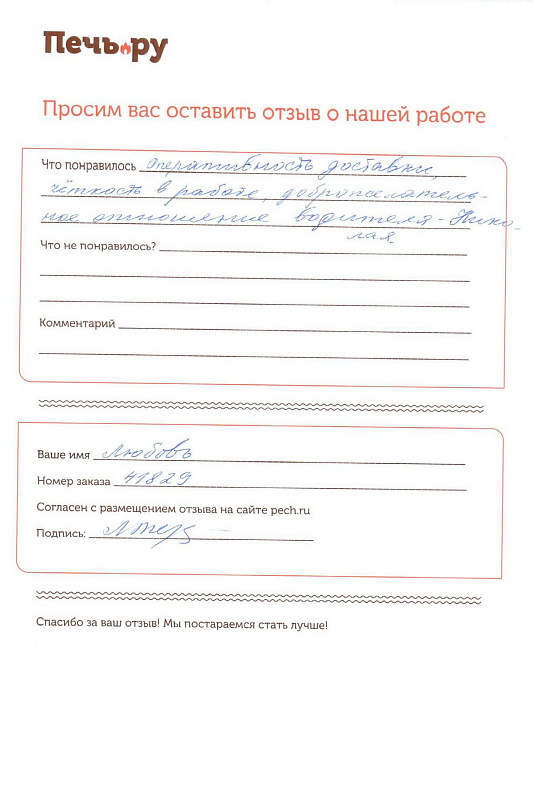 Печь.ру
Просим вас оставить отзыв о нашей работе
Что понравилось оперативность доставки,
чёткость в работе, доброжелатель-
ное отношение водителя - Нико-
лая.
Что не понравилось?
Комментарий
Ваше имя Любовь
Номер заказа 41829
Согласен с размещением отзыва на сайте pech.ru
Подпись:
Спасибо за ваш отзыв! Мы постараемся стать лучше!